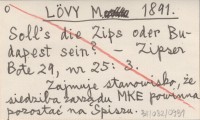 LÖVY M 1891.
Soll's die Zips oder Bu-
dapest sein? – Zipser
Bote 29, nr 25: 3.
Zajmuje stanowisko, że
siedziba zarządu MKE powinna
pozostać na Spiszu.